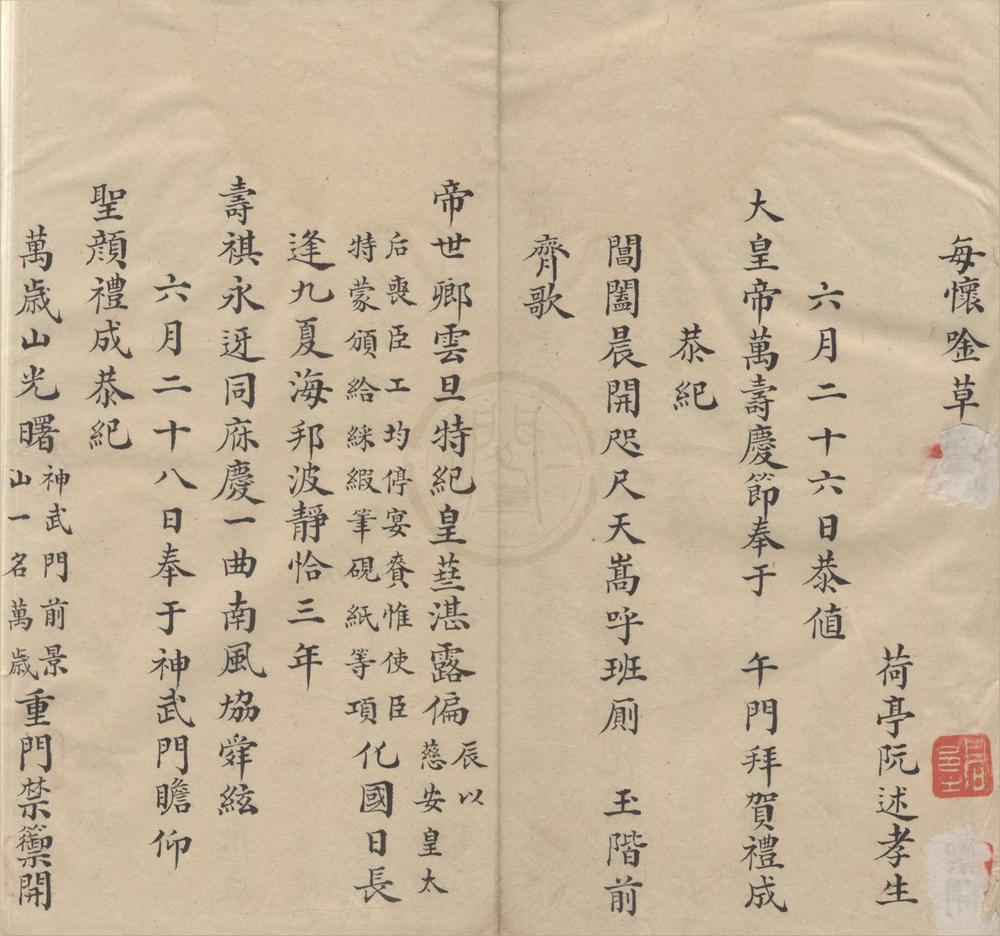 每懷唫草
荷亭阮述孝生
六月二十六日恭值
大皇帝萬壽慶節奉于 午門拜賀禮成
恭紀
閶闔晨開咫尺天嵩呼班厠 玉階前
齊歌
帝世卿雲旦特紀皇華湛露偏辰以慈安皇太
后喪臣工均停宴賚惟使臣特蒙頒給綵緞筆硯紙等項化國日長
逢九夏海邦波靜恰三年
壽祺永迓同庥慶一曲南風協舜絃
六月二十八日奉于神武門瞻仰
聖顔禮成恭紀
萬歲山光曙神武門前景山一名萬歲重門禁籞開